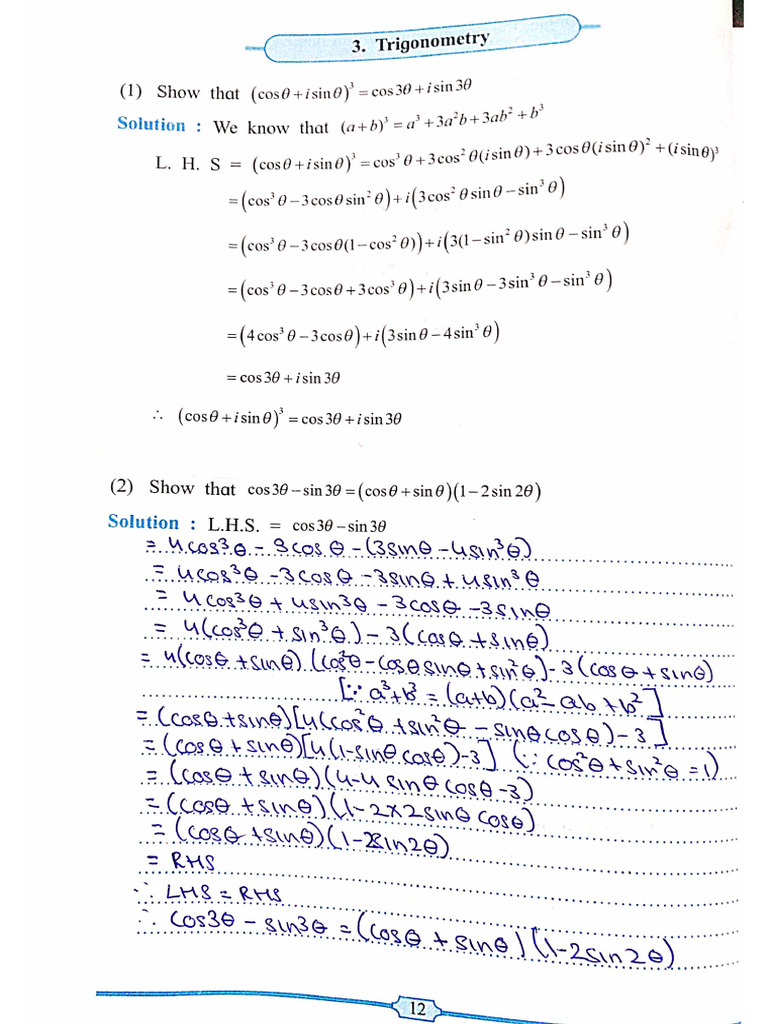 3. Trigonometry
(1) Show that (cosθ + i sinθ)³ = cos3θ + i sin3θ
Solution : We know that (a+b)³ = a³ + 3a²b + 3ab² + b³
L. H. S = (cosθ + i sinθ)³ = cos³θ + 3cos²θ(i sinθ) + 3cosθ(i sinθ)² + (i sinθ)³
= (cos³θ − 3cosθ sin²θ) + i(3cos²θ sinθ − sin³θ)
= (cos³θ − 3cosθ(1 − cos²θ)) + i(3(1 − sin²θ) sinθ − sin³θ)
= (cos³θ − 3cosθ + 3cos³θ) + i(3sinθ − 3sin³θ − sin³θ)
= (4cos³θ − 3cosθ) + i(3sinθ − 4sin³θ)
= cos3θ + i sin3θ
∴ (cosθ + i sinθ)³ = cos3θ + i sin3θ
(2) Show that cos3θ − sin3θ = (cosθ + sinθ)(1 − 2sin2θ)
Solution : L.H.S. = cos3θ − sin3θ
= 4cos³θ − 3cosθ − (3sinθ − 4sin³θ)
= 4cos³θ − 3cosθ − 3sinθ + 4sin³θ
= 4cos³θ + 4sin³θ − 3cosθ − 3sinθ
= 4(cos³θ + sin³θ) − 3(cosθ + sinθ)
= 4(cosθ + sinθ) (cos²θ − cosθ sinθ + sin²θ) − 3(cosθ + sinθ)
[∵ a³ + b³ = (a+b)(a² − ab + b²]
= (cosθ + sinθ)[4(cos²θ + sin²θ − sinθ cosθ) − 3]
= (cosθ + sinθ)[4(1 − sinθ cosθ) − 3] (∵ cos²θ + sin²θ = 1)
= (cosθ + sinθ)(4 − 4 sinθ cosθ − 3)
= (cosθ + sinθ)(1 − 2×2sinθ cosθ)
= (cosθ + sinθ)(1 − 2sin2θ)
= RHS
∴ LHS = RHS
∴ cos3θ − sin3θ = (cosθ + sinθ)(1 − 2sin2θ)
12